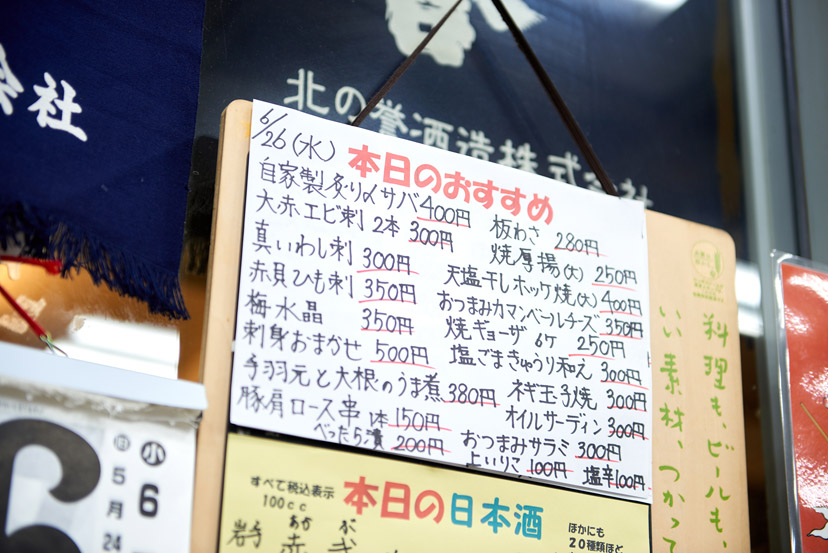 会社
北の誉酒造株式会社
6/26(水)
本日のおすすめ
自家製炙り〆サバ 400円
大赤エビ刺 2本 300円
真いわし刺 300円
赤貝ひも刺 350円
梅水晶 350円
刺身おまかせ 500円
手羽元と大根のうま煮 380円
豚肩ロース串 1本 150円
べったら漬 200円
板わさ 280円
焼厚揚(大) 250円
天塩干しホッケ焼(大) 400円
おつまみカマンベールチーズ 350円
焼ギョーザ 6ケ 250円
塩ごまきゅうり和え 300円
ネギ玉子焼 300円
オイルサーディン 300円
おつまみサラミ 300円
上いりこ 100円
塩辛 100円
すべて税込表示
100cc
本日の日本酒
ほかにも
20種類ほど
あかぶ
料理も、ビールも、
い素材、つかって
小
6
5
月
24